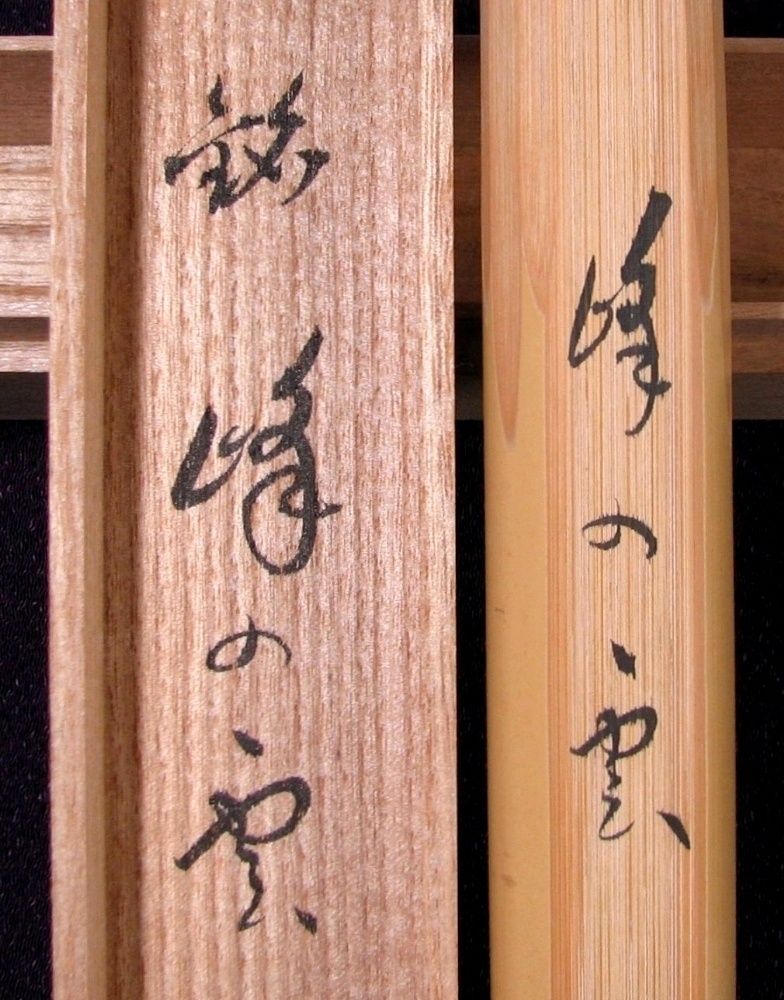 銘 峰の雲
峰の雲